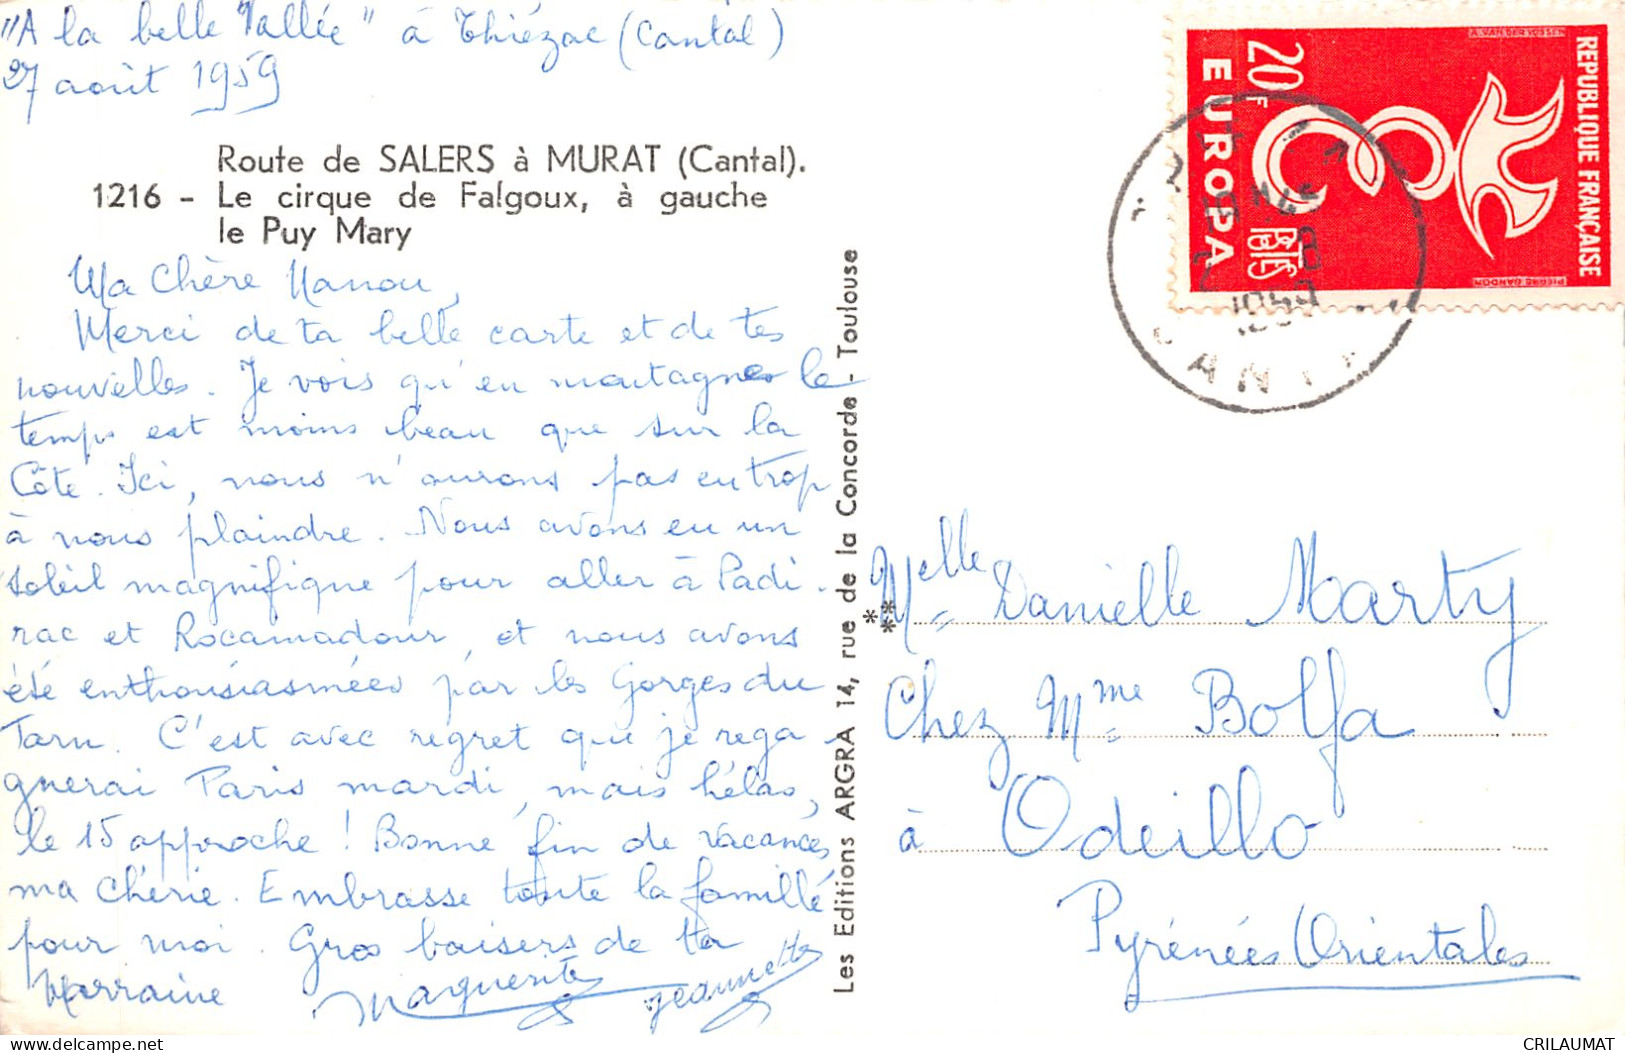 "A la belle Vallée" à Thiézac (Cantal)
27 août 1959
Route de SALERS à MURAT (Cantal).
1216 - Le cirque de Falgoux, à gauche
le Puy Mary
Ma Chère Nanou,
Merci de ta belle carte et de tes
nouvelles. Je vois qu'en montagnes le
temps est moins beau que sur la
Côte. Ici, nous n'aurons pas eu trop
à nous plaindre. Nous avons eu un
soleil magnifique pour aller à Padi-
rac et Rocamadour, et nous avons
été enthousiasmées par les Gorges du
Tarn. C'est avec regret que je rega-
gnerai Paris mardi, mais hélas,
le 15 approche ! Bonne fin de vacances
ma chérie. Embrasse toute la famille
pour moi. Gros baisers de ta
Marraine
Marguerite
Jeannette
Les Editions ARGRA 14, rue de la Concorde - Toulouse
REPUBLIQUE FRANÇAISE
20F
EUROPA
POSTES
A. VAN DER VOSSEN
PIERRE GANDON
1959
CANT
Melle Danielle Marty
Chez Mme Bolfa
à Odeillo
Pyrénées Orientales
CRILAUMAT